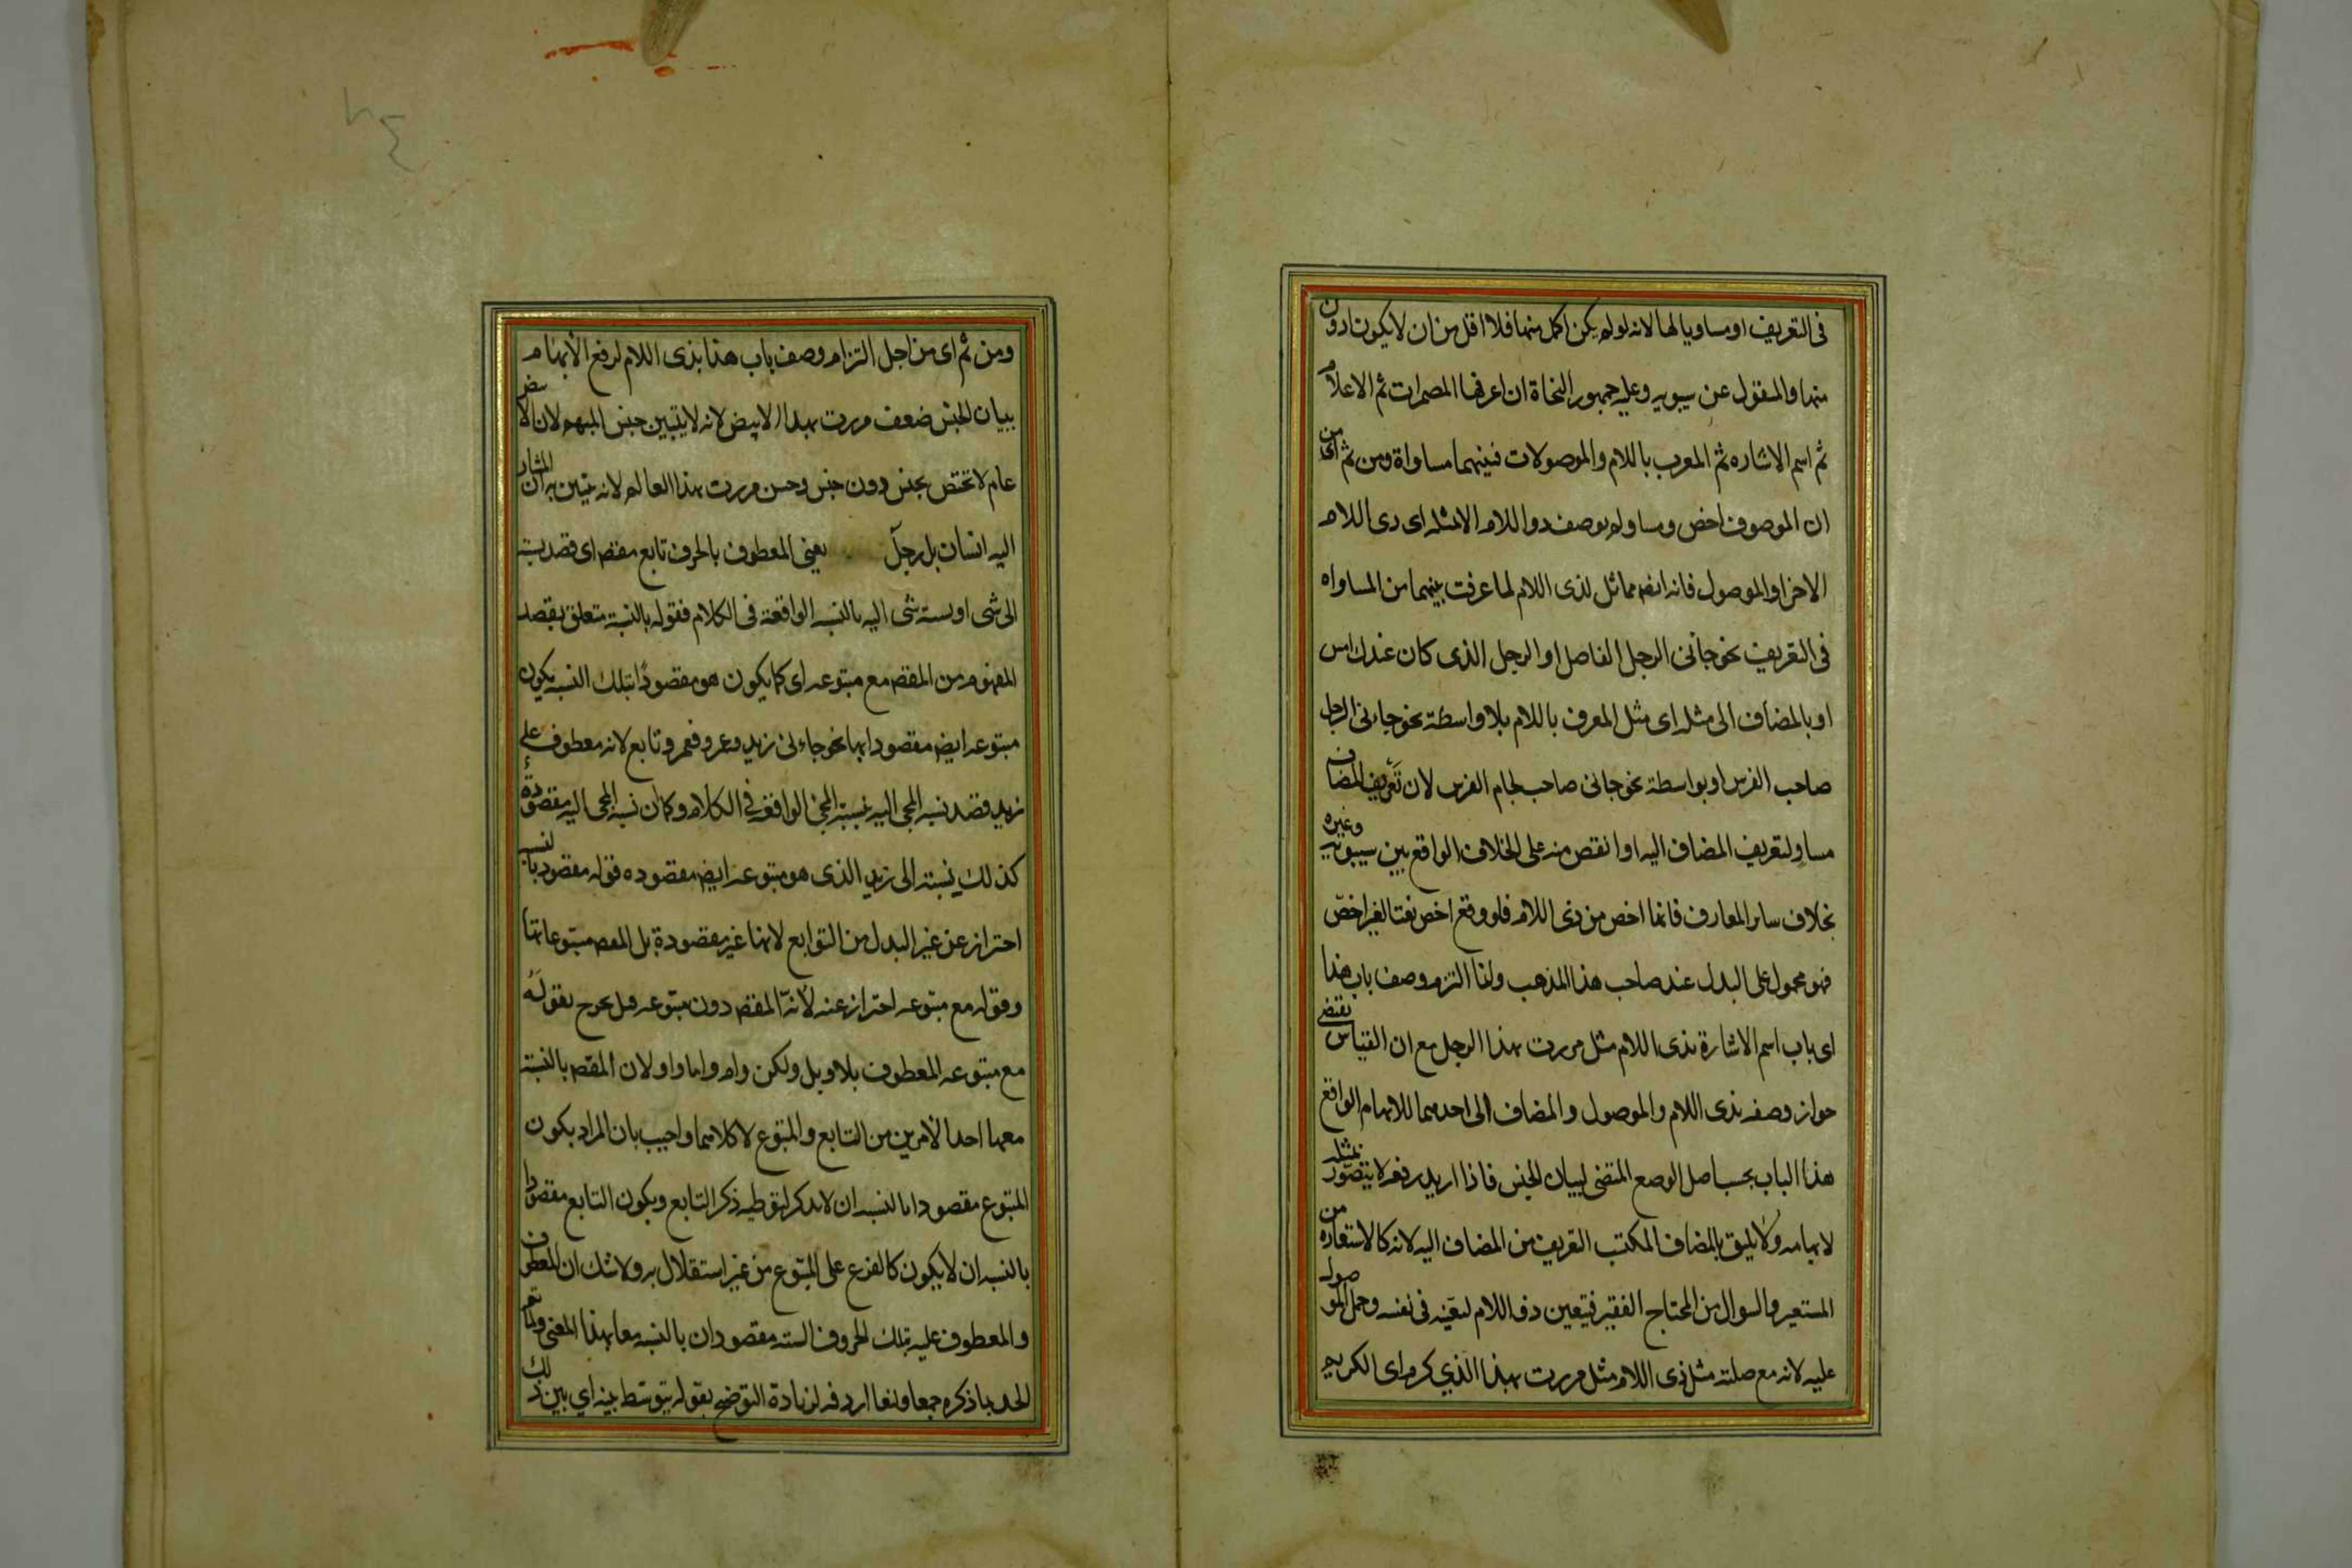 فى التعريف او مساويا لها لانه لو لم يكن اكمل منها فلا اقل من ان لا يكون ادون
منها والمنقول عن سيبويه وعليه جمهور النحاة ان اعرفها المضمرات ثم الاعلام
ثم اسم الاشاره ثم المعرب باللام والموصولات فبينهما مساواة ومن ثم اى من
ان الموصوف اخص ومساو لم يوصف ذو اللام الا بمثله اى ذى اللام
الاخر او الموصول فانه ايضا مماثل لذى اللام لما عرفت بينهما من المساواه
فى التعريف نحو جائى الرجل الفاضل او الرجل الذى كان عندك امس
او بالمضاف الى مثله اى مثل المعرف باللام بلا واسطة نحو جاءنى الرجل
صاحب الفرس او بواسطة نحو جائى صاحب لجام الفرس لان تعريف المضاف
مساو لتعريف المضاف اليه او انقص منه على الخلاف الواقع بين سيبويه وغيره
بخلاف ساير المعارف فانها اخص من ذى اللام فلو وقع اخص نعتا لغير اخص
فهو محمول على البدل عند صاحب هذا المذهب وانما التزم وصف باب هذا
اى باب اسم الاشارة بذى اللام مثل مررت بهذا الرجل مع ان القياس يقتضى
جواز وصفه بذى اللام والموصول والمضاف الى احدهما للابهام الواقع
هذا الباب بحسب اصل الوضع المقتضى لبيان الجنس فاذا اريد رفعه لا يتصور بمثله
لابهامه ولا يليق بالمضاف المكتسب التعريف من المضاف اليه لانه كالاستعاره من
المستعير والسوال من المحتاج الفقير فتعين ذو اللام لتعينه فى نفسه وحمل الموصول
عليه لانه مع صلته مثل ذى اللام مثل مررت بهذا الذي كرم اى الكريم
ومن ثم اى من اجل التزام وصف باب هذا بذى اللام لرفع الابهام
ببيان الجنس ضعف مررت بهذا الابيض لانه لا يتبين جنس المبهم لان الابيض
عام لا تختص بجنس دون جنس وحسن مررت بهذا العالم لانه يتبين به ان المشار
اليه انسان بل رجل يعنى المعطوف بالحرف تابع مقصم اى قصد نسبته
الى شى او نسبة شى اليه بالنسبه الواقعة فى الكلام فقوله بالنسبة متعلق بقصد
المفهوم من المقصم مع متبوعه اى كما يكون هو مقصودا بتلك النسبه يكون
متبوعه ايضا مقصودا بها نحو جاءنى زيد وعمرو فعمرو تابع لانه معطوف على
زيد قصد نسبه المجى اليه بنسبة المجئ الواقعة فى الكلام وكما ان نسبه المجى اليه مقصودة
كذلك نسبته الى زيد الذى هو متبوعه ايضا مقصوده فقوله مقصود بالنسبه
احتراز عن غير البدل من التوابع لانها غير مقصودة بل المقصم متبوعاتها
وقوله مع متبوعه احتراز عنه لانه المقصم دون متبوعه قيل يخرج بقوله
مع متبوعه المعطوف بلا وبل ولكن وام واما واو لان المقصم بالنسبة
معها احد الامرين من التابع والمتبوع لا كلاهما واجيب بان المراد بكون
المتبوع مقصودا بالنسبه ان لا يذكر لتوطيه ذكر التابع وبكون التابع مقصودا
بالنسبه ان لا يكون كالفرع على المتبوع من غير استقلال به ولا شك ان المعطوف
والمعطوف عليه بتلك الحروف السته مقصودان بالنسبه معا بهذا المعنى ولما تم
الحد بما ذكره جمعا ومنعا اردفه لزيادة التوضيح بقوله يتوسط بينه اي بين ذلك